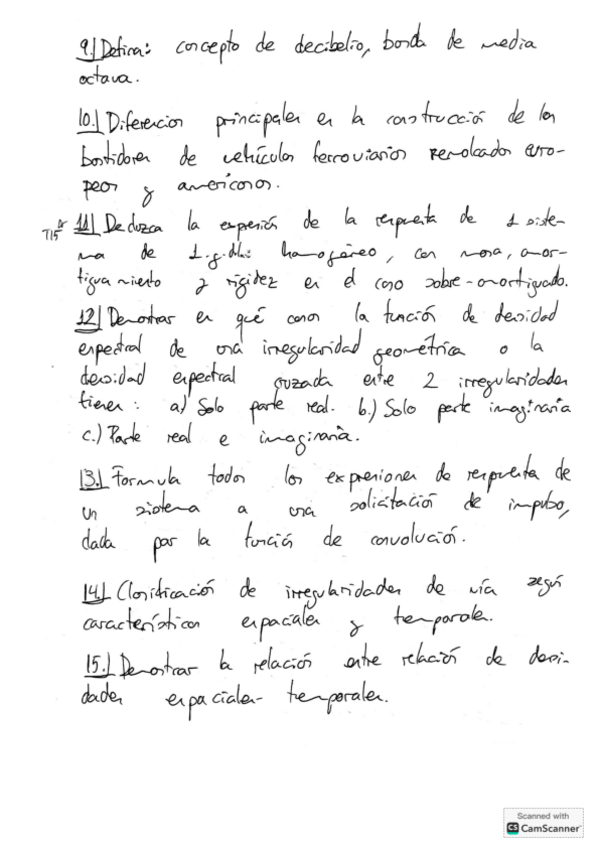 9.) Defina: concepto de decibelio, banda de media
octava.
10.) Diferencias principales en la construcción de los
bastidores de vehículos ferroviarios remolcados euro-
peos y americanos.
11.) Deduzca la expresión de la respuesta de 1 siste-
ma de 1.g.d.l.: homogéneo, con masa, amor-
tiguamiento y rigidez en el caso sobre-amortiguado.
12.) Demostrar en qué casos la función de densidad
espectral de una irregularidad geométrica o la
densidad espectral cruzada entre 2 irregularidades
tienen: a) Solo parte real. b.) Solo parte imaginaria
c.) Parte real e imaginaria.
13.) Formula todas las expresiones de respuesta de
un sistema a una solicitación de impulso,
dada por la función de convolución.
14.) Clasificación de irregularidades de vía según
características espaciales y temporales.
15.) Demostrar la relación entre relación de densi-
dades espaciales-temporales.
Scanned with
CS CamScanner